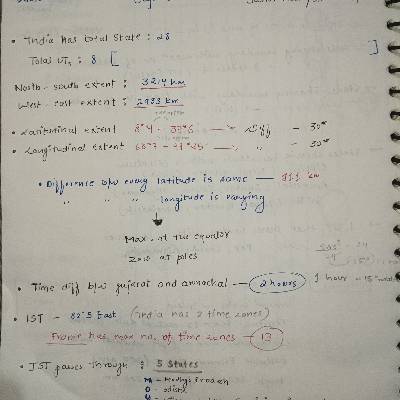 • India has total state : 28
Total UTs : 8 [ ]
North-south extent : 3214 km
West-east extent : 2933 km
• Latitudinal extent 8°4 - 37°6 → Diff - 30°
• Longitudinal extent 68°7 - 97°25 → " - 30°
• Difference b/w every latitude is same — 111 km
" " " longitude is varying
Max. at the equator
Zero at poles
• Time diff b/w gujarat and arunachal — 2 hours
1 hour - 15°
• IST - 82°5 East (India has 2 time zones)
France has max no. of time zones - 13
• IST passes through : 5 states
M - Madhya Pradesh
O - odisha